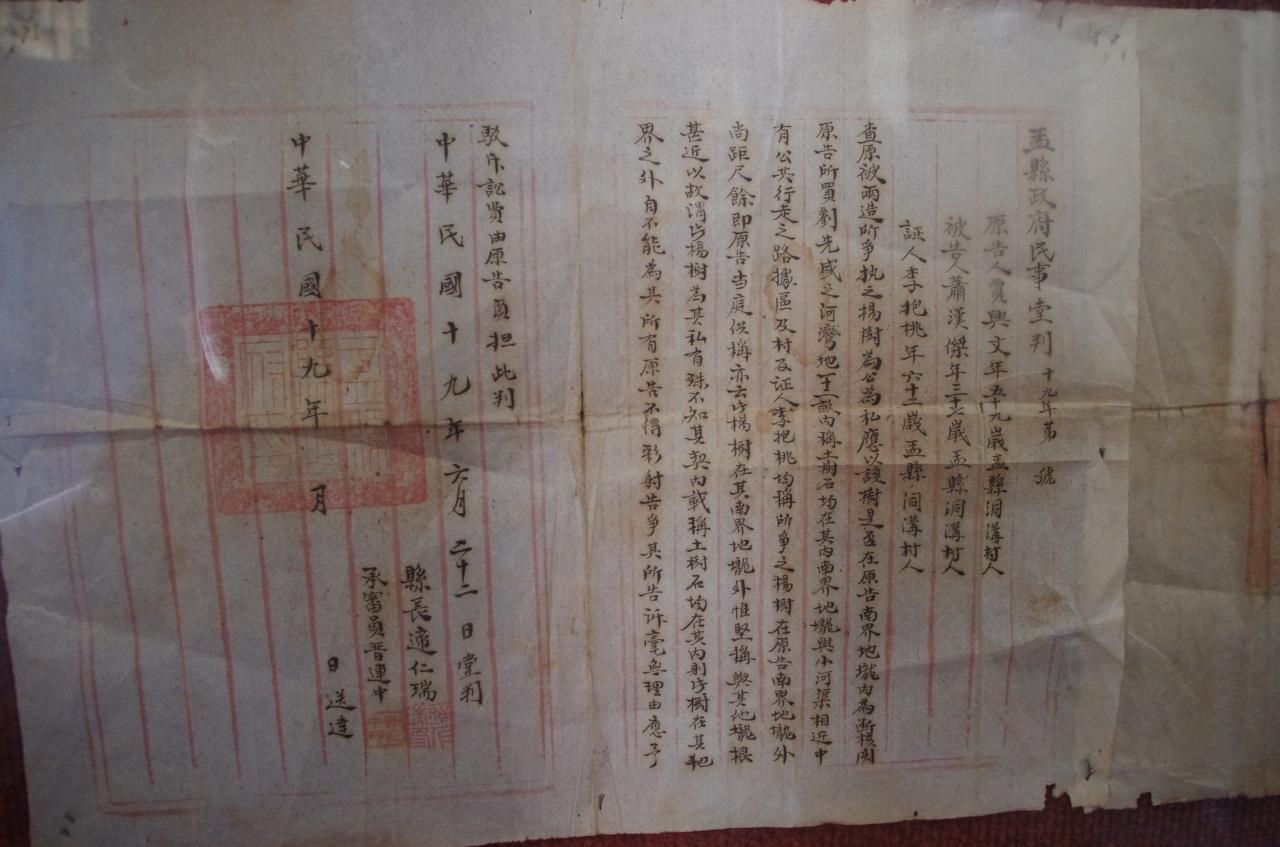 盂縣政府民事堂判 十九年第 號
原告人賈興文年五十九歲盂縣洞溝村人
被告人蕭漢傑年三十六歲盂縣洞溝村人
証人李抱桃年六十二歲盂縣洞溝村人
查原被兩造所爭执之楊樹為公為私應以該樹是否在原告南界地壠內為断核閱
原告所買劉先盛之河灣地十二畝內稱土樹石均在其內南界地壠與小河渠相近中
有公共行走之路據區及村及证人李抱桃均稱所爭之楊樹在原告南界地壠外
尚距尺餘即原告当庭供稱亦云片楊樹在其南界地壠外惟堅稱與其地壠根
甚近以故谓片楊樹為其私有殊不知其契內載稱土樹石均在其內則片樹在其地
界之外自不能為其所有原告不得影射告爭其所告诉毫無理由應予
駁斥訟費由原告負担此判
中華民國十九年六月二十二日堂判
縣長 仁瑞
承審員晋運中
中華民國十九年 月 日送達